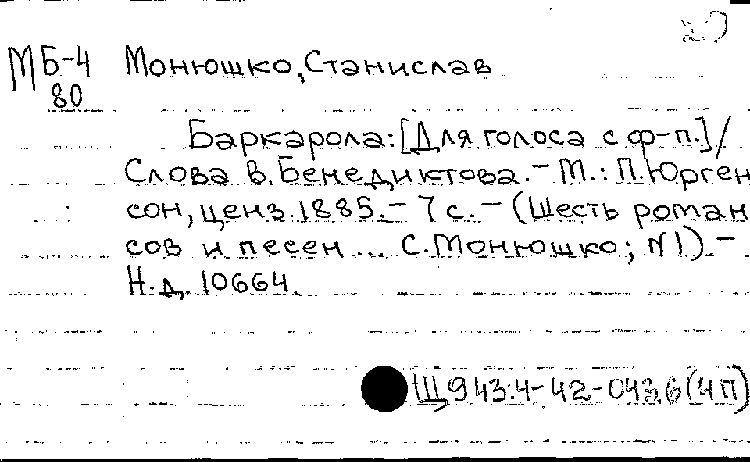 МБ-4 Монюшко, Станислав
80
Баркарола: [Для голоса с ф-п.] /
Слова В. Бенедиктова. - М.: П. Юрген
сон, ценз. 1885. - 7 с. - (Шесть роман
сов и песен ... С. Монюшко; N1). -
Н.д. 10664.
Щ943.4-42-043.6(4П)